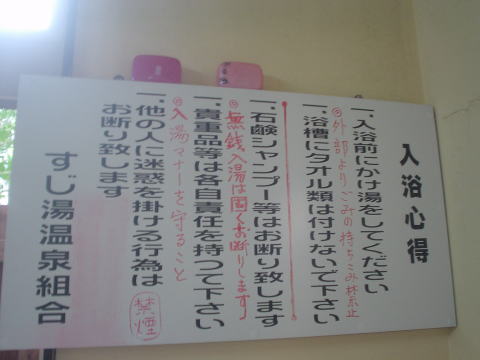 入浴心得
一、入浴前にかけ湯をしてください
◎外部よりごみの持ちこみ禁止
一、浴槽にタオル類は付けないで下さい
一、石鹸シャンプー等はお断り致します
◎無銭入湯は固くお断りします
一、貴重品等は各自責任を持つて下さい
◎入湯マナーを守ること
一、他の人に迷惑を掛ける行為は
お断り致します
禁煙
すじ湯温泉組合